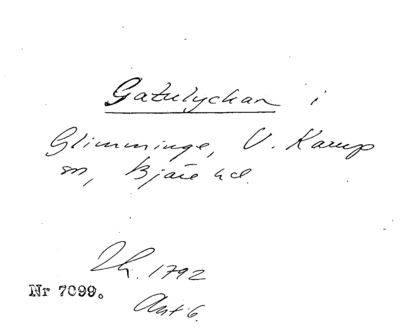 Gatulyckan i
Glimminge, V. Karup
sn, Bjäre hd.
Lh. 1792
Akt 6.
Nr 7099.